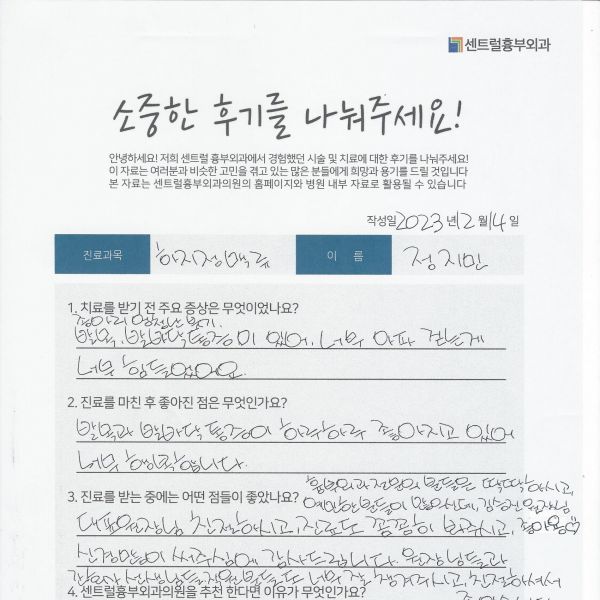 센트럴흉부외과
소중한 후기를 나눠주세요!
안녕하세요! 저희 센트럴 흉부외과에서 경험했던 시술 및 치료에 대한 후기를 나눠주세요!
이 자료는 여러분과 비슷한 고민을 겪고 있는 많은 분들에게 희망과 용기를 드릴 것입니다
본 자료는 센트럴흉부외과의원의 홈페이지와 병원 내부 자료로 활용될 수 있습니다
작성일 2023 년 12 월 14 일
진료과목 하지정맥류 이 름 정지민
1. 치료를 받기 전 주요 증상은 무엇이었나요?
종아리
발목, 발바닥 통증이 있어, 너무 아파 걷는게
너무 힘들었어요.
2. 진료를 마친 후 좋아진 점은 무엇인가요?
발목과 발바닥 통증이 하루하루 좋아지고 있어
너무 행복합니다.
3. 진료를 받는 중에는 어떤 점들이 좋았나요?
흉부외과 분들은 딱딱하시고,
예민한 분들이 많으신데, 원장님
대표원장님 친절하시고, 진료도 꼼꼼히 봐주시고, 좋아요♡
신경많이 써주심에 감사드립니다. 원장님들과
너무 잘 챙겨주시고, 친절하셔서
4. 센트럴흉부외과의원을 추천 한다면 이유가 무엇인가요?